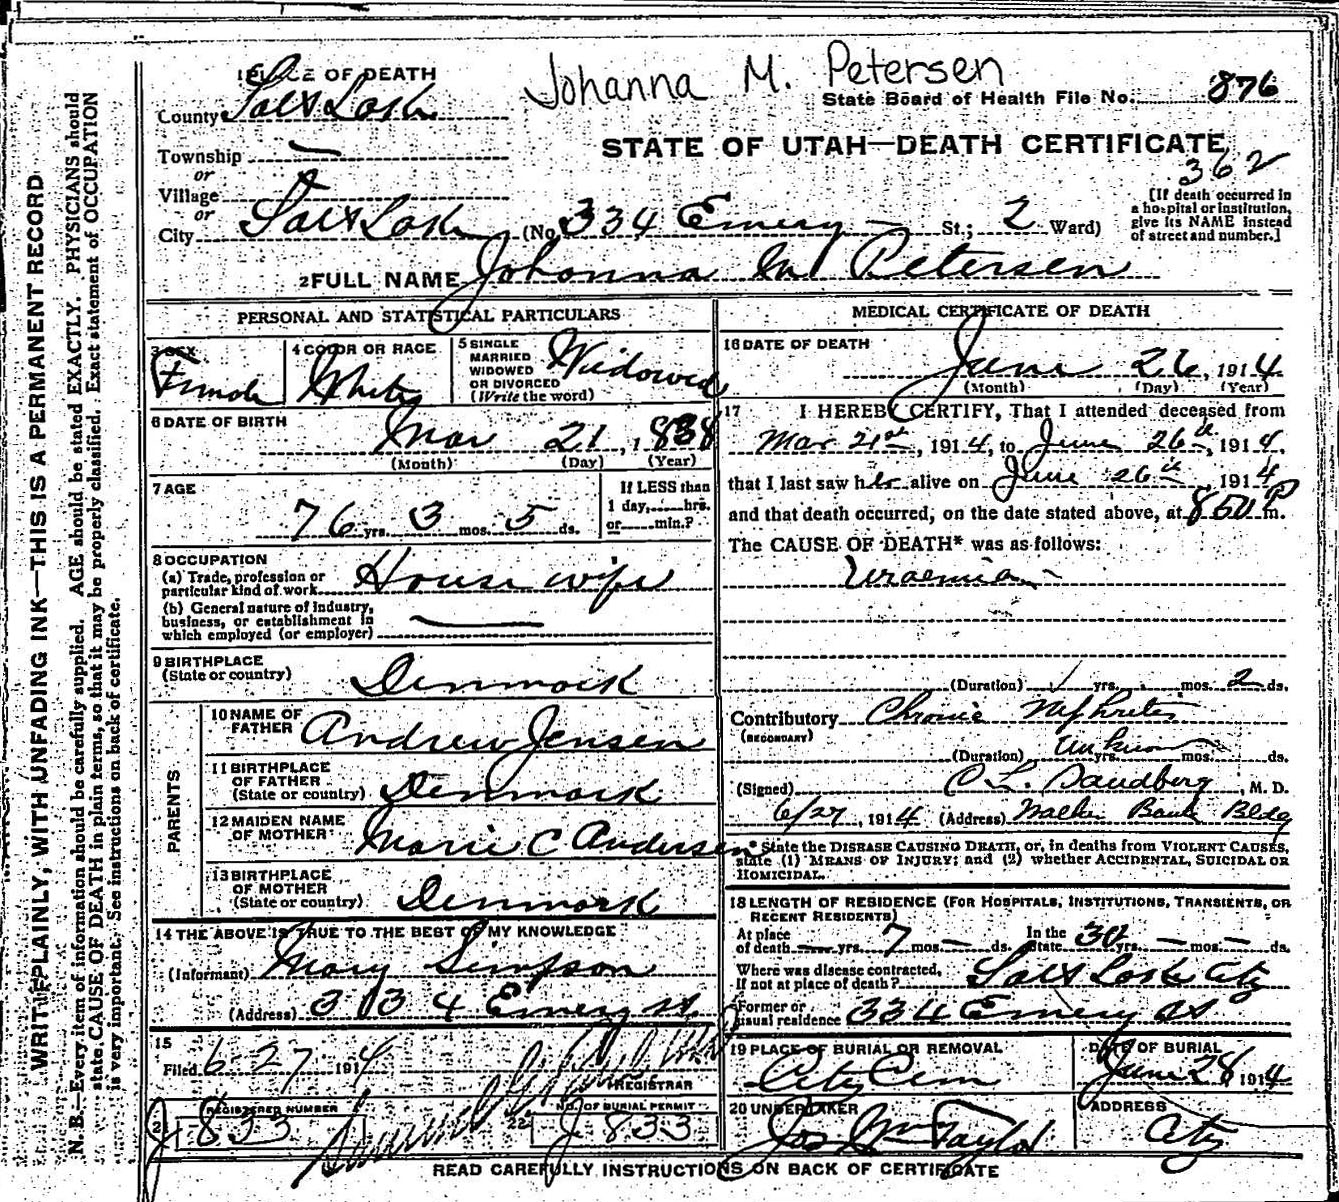 WRITE PLAINLY, WITH UNFADING INK—THIS IS A PERMANENT RECORD
N. B.—Every item of information should be carefully supplied. AGE should be stated EXACTLY. PHYSICIANS should
state CAUSE OF DEATH in plain terms, so that it may be properly classified. Exact statement of OCCUPATION
is very important. See instructions on back of certificate.
Johanna M. Petersen
1 PLACE OF DEATH
County Salt Lake
State Board of Health File No. 876
Township —
or
Village
or
STATE OF UTAH—DEATH CERTIFICATE
362
City Salt Lake (No. 334 Emery — St.; 2 Ward)
[If death occurred in
a hospital or institution,
give its NAME instead
of street and number.]
2 FULL NAME Johanna M Petersen
PERSONAL AND STATISTICAL PARTICULARS
3 SEX
Female
4 COLOR OR RACE
White
5 SINGLE
MARRIED
WIDOWED
OR DIVORCED
(Write the word)
Widowed
6 DATE OF BIRTH
Mar 21, 1838
(Month) (Day) (Year)
7 AGE
76 yrs. 3 mos. 5 ds.
If LESS than
1 day, hrs.
or min.?
8 OCCUPATION
(a) Trade, profession or
particular kind of work House wife
(b) General nature of industry,
business, or establishment in
which employed (or employer) —
9 BIRTHPLACE
(State or country) Denmark
PARENTS
10 NAME OF
FATHER Andrew Jensen
11 BIRTHPLACE
OF FATHER
(State or country) Denmark
12 MAIDEN NAME
OF MOTHER Marie C Andersen
13 BIRTHPLACE
OF MOTHER
(State or country) Denmark
14 THE ABOVE IS TRUE TO THE BEST OF MY KNOWLEDGE
(Informant) Mary Simpson
(Address) 334 Emery st.
15
Filed 6-27 1914
REGISTRAR
REGISTERED NUMBER
21 J 833
NO. OF BURIAL PERMIT
22 J 833
MEDICAL CERTIFICATE OF DEATH
16 DATE OF DEATH
June 26, 1914
(Month) (Day) (Year)
17 I HEREBY CERTIFY, That I attended deceased from
Mar 21st, 1914, to June 26th, 1914,
that I last saw her alive on June 26th 1914
and that death occurred, on the date stated above, at 850 P m.
The CAUSE OF DEATH* was as follows:
Uraemia —
(Duration) yrs. mos. 2 ds.
Contributory Chronic Nephritis
(SECONDARY)
(Duration) Unknown yrs. mos. ds.
(Signed) C. L. Sandberg, M. D.
6/27, 1914 (Address) Walker Bank Bldg
* State the DISEASE CAUSING DEATH, or, in deaths from VIOLENT CAUSES,
state (1) MEANS OF INJURY; and (2) whether ACCIDENTAL, SUICIDAL OR
HOMICIDAL.
18 LENGTH OF RESIDENCE (FOR HOSPITALS, INSTITUTIONS, TRANSIENTS, OR
RECENT RESIDENTS)
At place
of death — yrs. 7 mos. — ds. In the
State yrs. — mos. — ds.
Where was disease contracted,
If not at place of death? Salt Lake City
Former or
usual residence 334 Emery st
19 PLACE OF BURIAL OR REMOVAL
City Cem
DATE OF BURIAL
June 28 1914
20 UNDERTAKER
Jos Wm Taylor
ADDRESS
City
READ CAREFULLY INSTRUCTIONS ON BACK OF CERTIFICATE